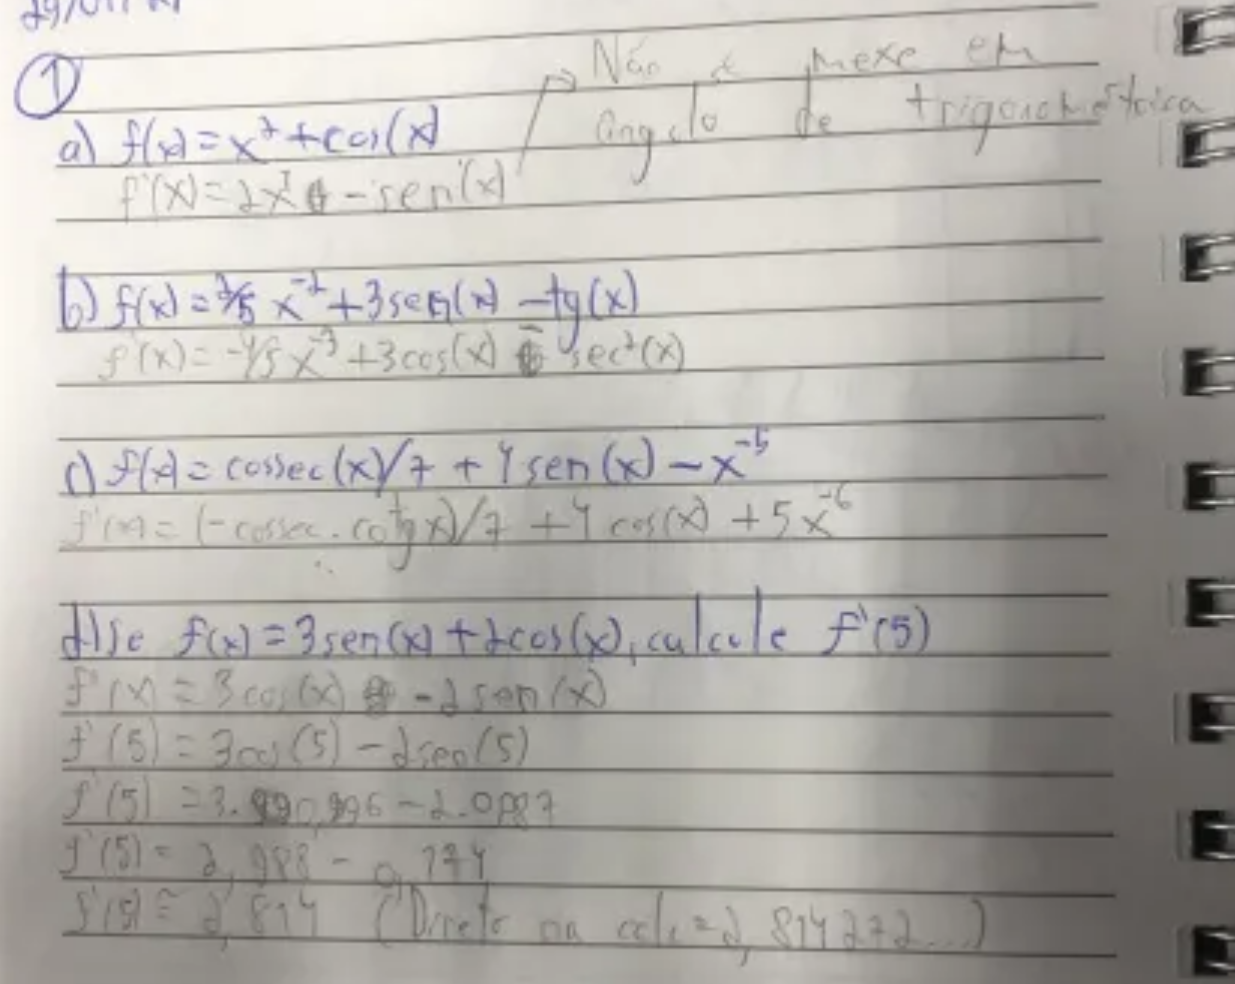 ①
Não se mexe em
ângulo de trigonométrica
a) f(x) = x² + cos(x)
f'(x) = 2x¹ - sen(x)
b) f(x) = 2/5 x⁻² + 3sen(x) - tg(x)
f'(x) = -4/5 x⁻³ + 3cos(x) - sec²(x)
c) f(x) = cossec(x)/7 + 4sen(x) - x⁻⁵
f'(x) = (-cossec . cotg x)/7 + 4 cos(x) + 5x⁻⁶
d) Se f(x) = 3sen(x) + 2cos(x), calcule f'(5)
f'(x) = 3cos(x) - 2sen(x)
f'(5) = 3cos(5) - 2sen(5)
f'(5) = 3.0,996 - 2.0,087
f'(5) = 2,988 - 0,174
f'(5) ≅ 2,814 (Direto na calc = 2,814272...)